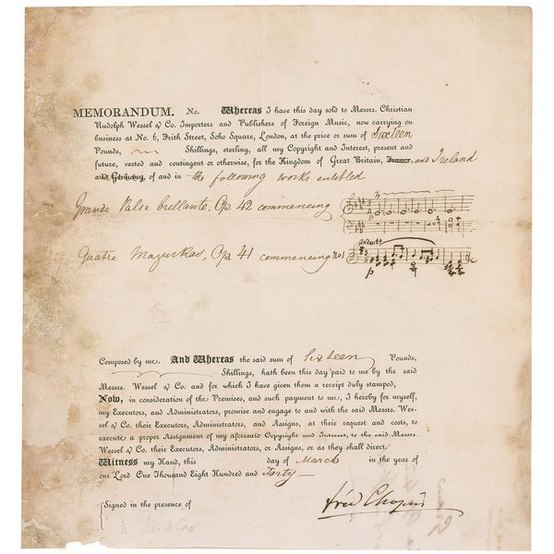 MEMORANDUM. No. Whereas I have this day sold to Messrs. Christian
Rudolph Wessel & Co. Importers and Publishers of Foreign Music, now carrying on
business at No. 6, Frith Street, Soho Square, London, at the price or sum of Sixteen
Pounds, Shillings, sterling, all my Copyright and Interest, present and
future, vested and contingent or otherwise, for the Kingdom of Great Britain, France, and Ireland
and Germany, of and in the following works entitled
Grande Valse brillante. Op. 42 commencing
Quatre Mazurkas, Op. 41 commencing No1
Andante
p
Composed by me. And Whereas the said sum of Sixteen Pounds,
Shillings, hath been this day paid to me by the said
Messrs. Wessel & Co. and for which I have given them a receipt duly stamped,
Now, in consideration of the Premises, and such payment to me, I hereby for myself,
my Executors, and Administrators, promise and engage to and with the said Messrs. Wes-
sel & Co. their Executors, Administrators, and Assigns, at their request and costs, to
execute a proper Assignment of my aforesaid Copyright and Interest, to the said Messrs.
Wessel & Co. their Executors, Administrators, or Assigns, or as they shall direct.
Witness my Hand, this day of March in the year of
our Lord One Thousand Eight Hundred and Forty
Signed in the presence of
fréd Chopin